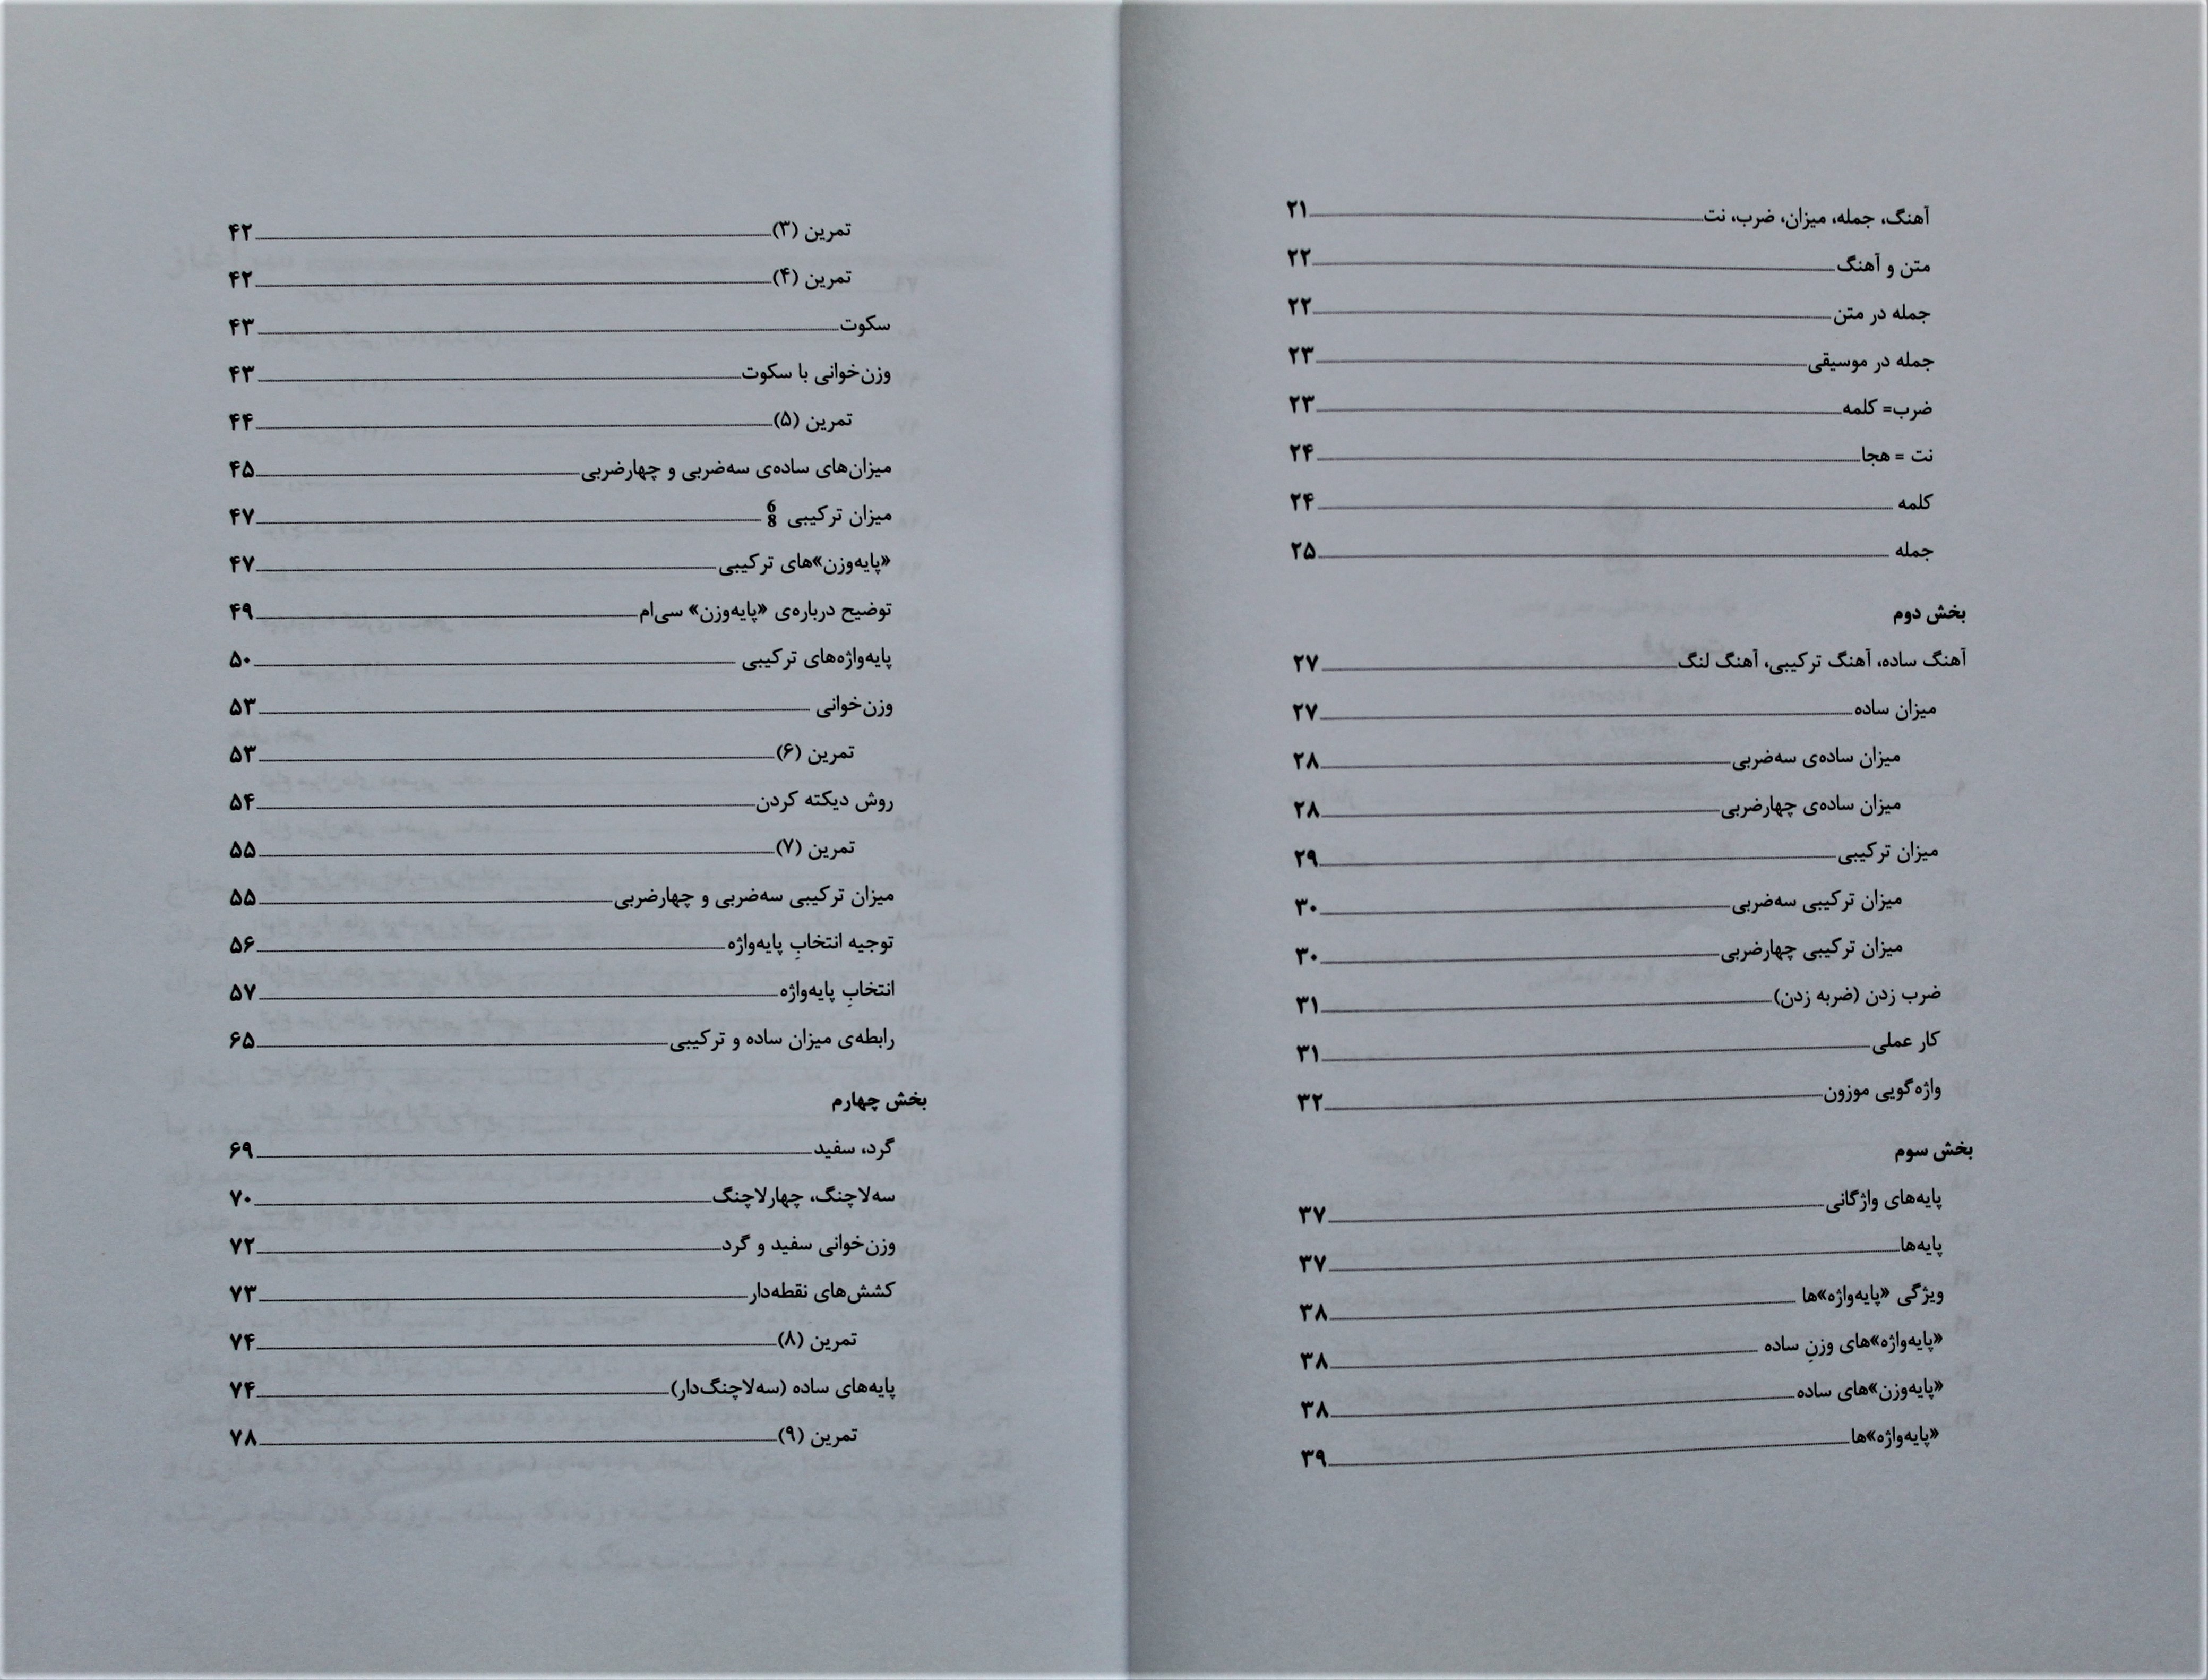 آهنگ، جمله، میزان، ضرب، نت ۲۱
متن و آهنگ ۲۲
جمله در متن ۲۲
جمله در موسیقی ۲۳
ضرب= کلمه ۲۳
نت = هجا ۲۴
کلمه ۲۴
جمله ۲۵
بخش دوم
آهنگ ساده، آهنگ ترکیبی، آهنگ لنگ ۲۷
میزان ساده ۲۷
میزان ساده‌ی سه‌ضربی ۲۸
میزان ساده‌ی چهارضربی ۲۸
میزان ترکیبی ۲۹
میزان ترکیبی سه‌ضربی ۳۰
میزان ترکیبی چهارضربی ۳۰
ضرب زدن (ضربه زدن) ۳۱
کار عملی ۳۱
واژه‌گویی موزون ۳۲
بخش سوم
پایه‌های واژگانی ۳۷
پایه‌ها ۳۷
ویژگی «پایه‌واژه»ها ۳۸
«پایه‌واژه»های وزنِ ساده ۳۸
«پایه‌وزن»های ساده ۳۸
«پایه‌واژه»ها ۳۹
تمرین (۳) ۴۲
تمرین (۴) ۴۲
سکوت ۴۳
وزن‌خوانی با سکوت ۴۳
تمرین (۵) ۴۴
میزان‌های ساده‌ی سه‌ضربی و چهارضربی ۴۵
میزان ترکیبی 6/8 ۴۷
«پایه‌وزن»های ترکیبی ۴۷
توضیح درباره‌ی «پایه‌وزن» سی‌ام ۴۹
پایه‌واژه‌های ترکیبی ۵۰
وزن‌خوانی ۵۳
تمرین (۶) ۵۳
روش دیکته کردن ۵۴
تمرین (۷) ۵۵
میزان ترکیبی سه‌ضربی و چهارضربی ۵۵
توجیه انتخابِ پایه‌واژه ۵۶
انتخابِ پایه‌واژه ۵۷
رابطه‌ی میزان ساده و ترکیبی ۶۵
بخش چهارم
گرد، سفید ۶۹
سه‌لاچنگ، چهارلاچنگ ۷۰
وزن‌خوانی سفید و گرد ۷۲
کشش‌های نقطه‌دار ۷۳
تمرین (۸) ۷۴
پایه‌های ساده (سه‌لاچنگ‌دار) ۷۴
تمرین (۹) ۷۸